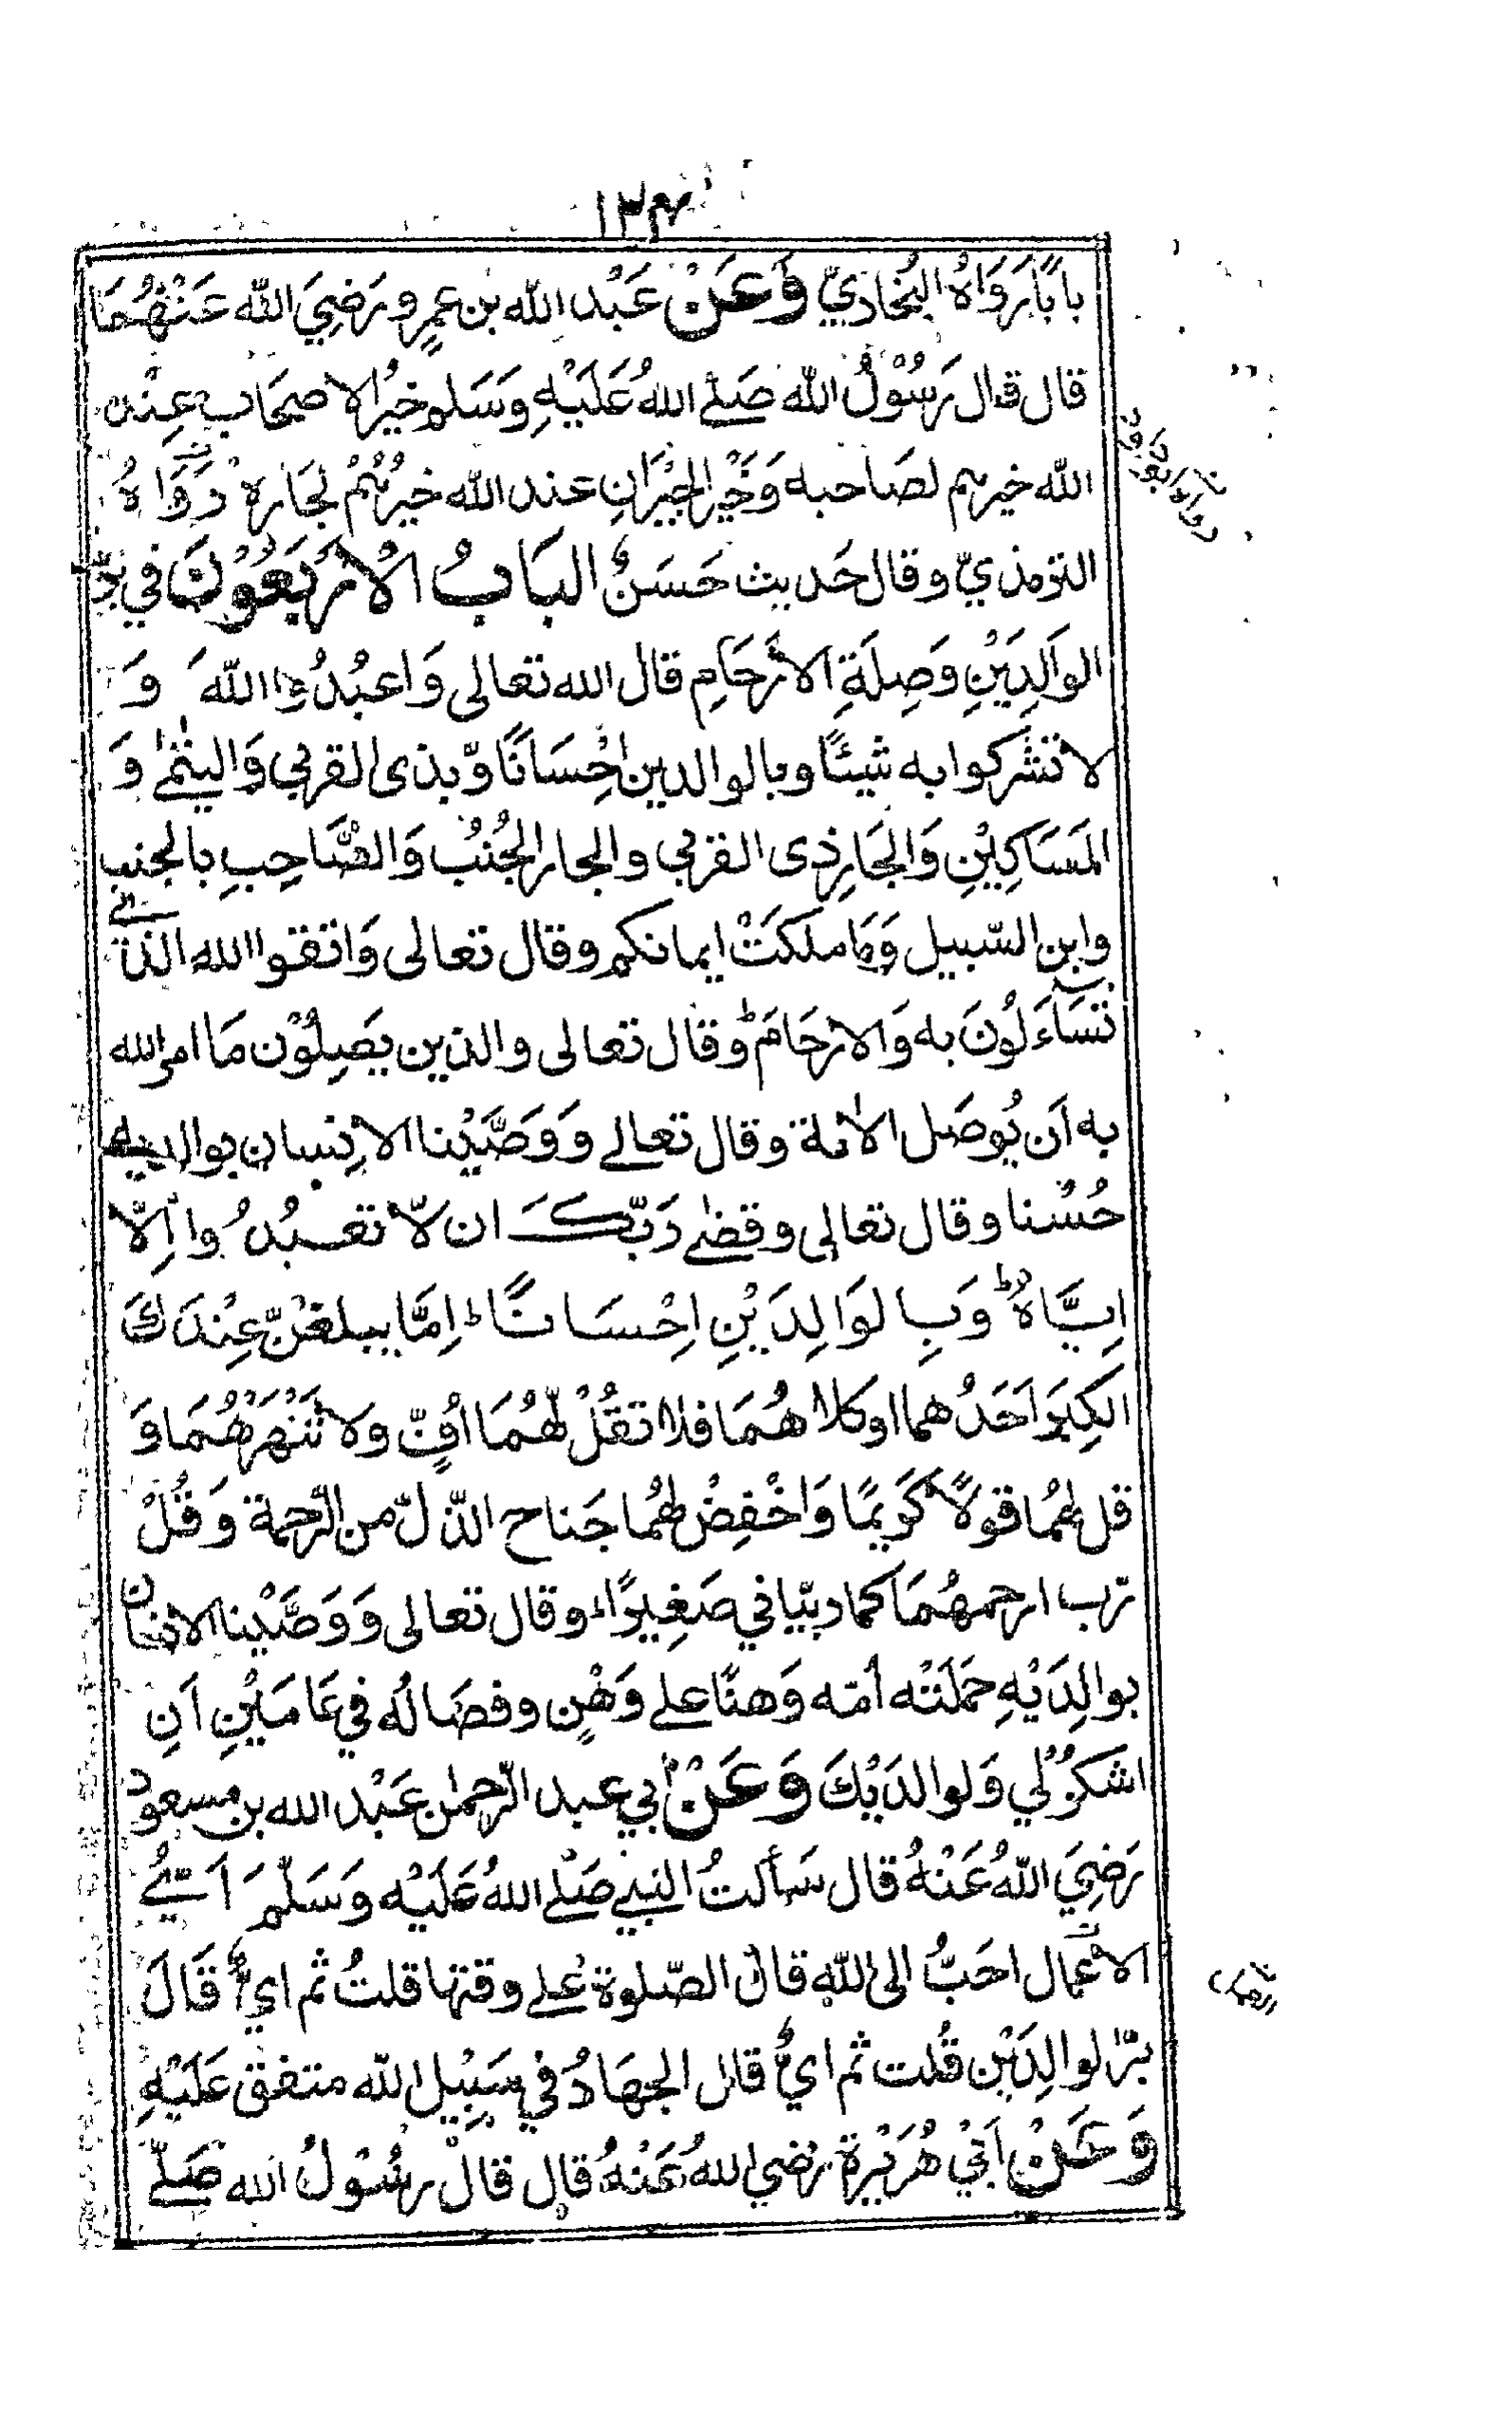 ١٣٤
بابًا رَوَاهُ البُخاريّ وَعَنْ عَبْد الله بن عمرٍو رَضِيَ الله عَنْهُمَا
قال قال رَسُوْلُ الله صَلَّے اللهُ عَلَيْهِ وَسَلم خيْرُ الاصحَاب عِنْد
الله خيرهم لصَاحبه وَخَيْر الجيْرَانِ عند الله خيْرُهُمْ لجَاره رَوَاهُ
الترمذيّ وقال حَديث حَسَنٌ البَابُ الاَرْبَعُوْنَ في برّ
الوَالِدَيْنِ وَصِلَةِ الاَرْحَامِ قال الله تعالى وَاعبُدُوا اللّهَ وَ
لا تشركوا به شيئًا وبالوالدين اِحْسَانًا وّبذى القربى وَاليتٰمٰے وَ
المَسَاكِيْنِ وَالجَارِ ذِى القربى والجار الجُنُبْ وَالصَّاحِبِ بالجنب
وابن السّبيل وَمَا ملكتْ ايمانكم وقال تعالى وَاتقوا الله الذے
تسَآءَلُونَ به وَالارْحَامَ ط وقال تعالى والذين يصِلُوْن مَا امر الله
به اَن يُوصَل الاٰية وقال تعالے وَوَصَّيْنا الاِنسان بوالديه
حُسْنا وقال تعالى وقضٰے رَبّكَ ان لّا تعبُدُوا اِلّا
اِيَّاهُ ط وَبِالوَالِدَيْنِ اِحْسَانًا ط اِمَّا يبلغنّ عِنْدَكَ
الكِبَرَ اَحَدُهما او كلاهُمَا فلا تقُلْ لّهُمَا اُفٍّ وَلا تَنْهَرْهُمَا وَ
قل لهُما قولًا كَريمًا وَاخْفِضْ لهُما جَناح الذّلّ من الرّحمة وَقُلْ
رّب ارحمهُمَا كما ربّيانى صَغِيرًا وقال تعالى وَوَصَّيْنا الانسان
بوالِدَيْهِ حَمَلَتْه اُمّه وَهنًا علے وَهْنٍ وفصَالُه في عَامَيْنِ اَنِ
اشكرْ لي وَلوالدَيْكَ وَعَنْ ابي عبد الرّحمٰن عَبْد الله بن مسعود
رَضِيَ اللهُ عَنْهُ قال سَألتُ النبے صَلّے اللهُ عَلَيْه وَسَلّمَ اَيُّے
الاعْمال احَبُّ الى اللّه قال الصّلوة علے وقتها قلتُ ثم ايٌّ قَالَ
برّ لوالِدَيْن قُلت ثم ايٌّ قال الجهَادُ في سَبِيْلِ الله متفق عَلَيْهِ
وَعَنْ اَبِيْ هُرَيْرَة رَضي اللهُ عَنْهُ قال قال رسُوْلُ الله صَلّے